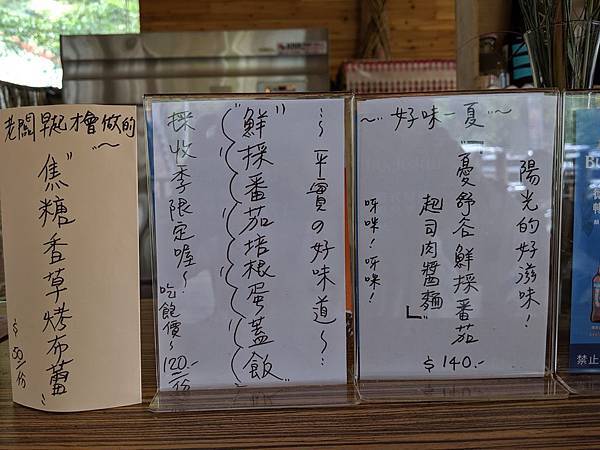 老闆早起才會做的~
"焦糖香草烤布蕾"
$50/份
~平實の好味道~
"鮮"採番茄培根蛋蓋飯"
採收季限定喔~
吃飽價~120/份
~好味一夏~
陽光的好滋味!
『憂舒谷鮮採番茄
起司肉醬麵』
呀咪!呀咪!
$140.-
禁止